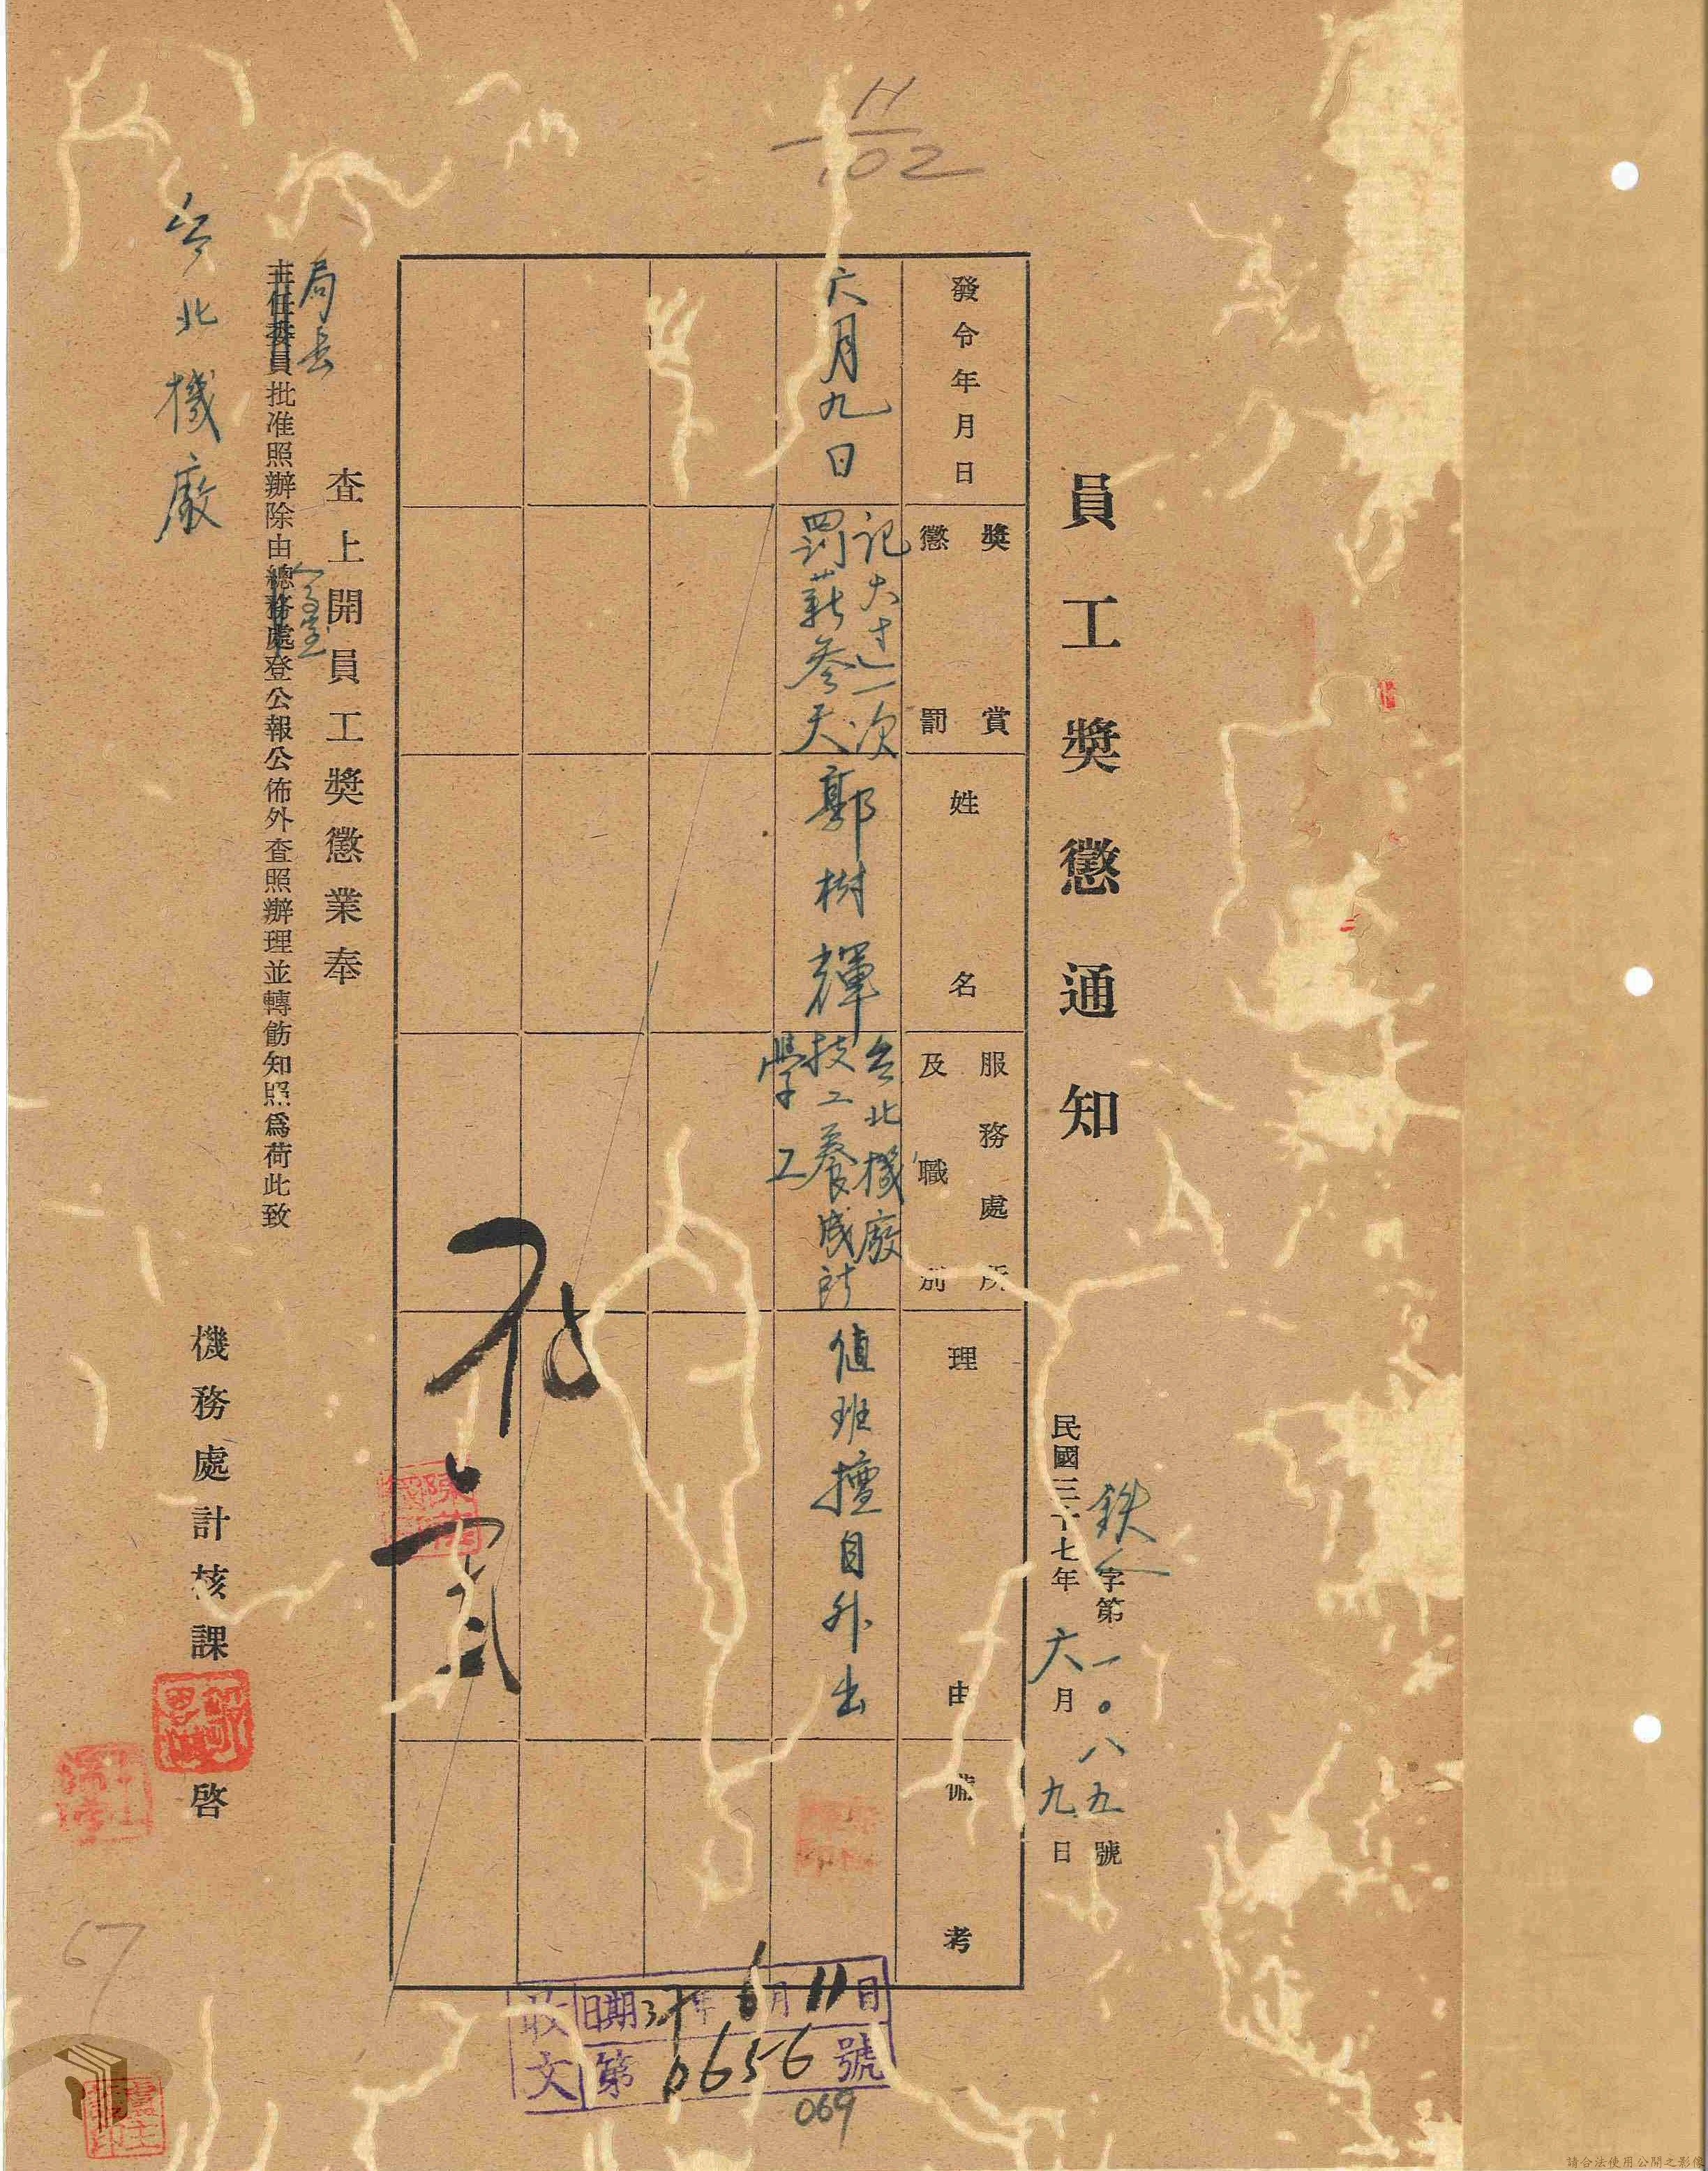 11
102
員工獎懲通知
鉄人字第一〇八五號
民國三十七年六月九日
發令年月日
獎賞
懲罰
姓名
服務處所
及職別
理由
備考
六月九日
記大過一次
罰薪叁天
郭樹輝
台北機廠
技工養成所
學工
值班擅自外出
查上開員工獎懲業奉
局長
主任委員批准照辦除由總務處登公報公佈外查照辦理並轉飭知照爲荷此致
人事室
台北機廠
機務處計核課啓
收文
日期37年6月11日
第0656號
069
67
請合法使用公開之影像